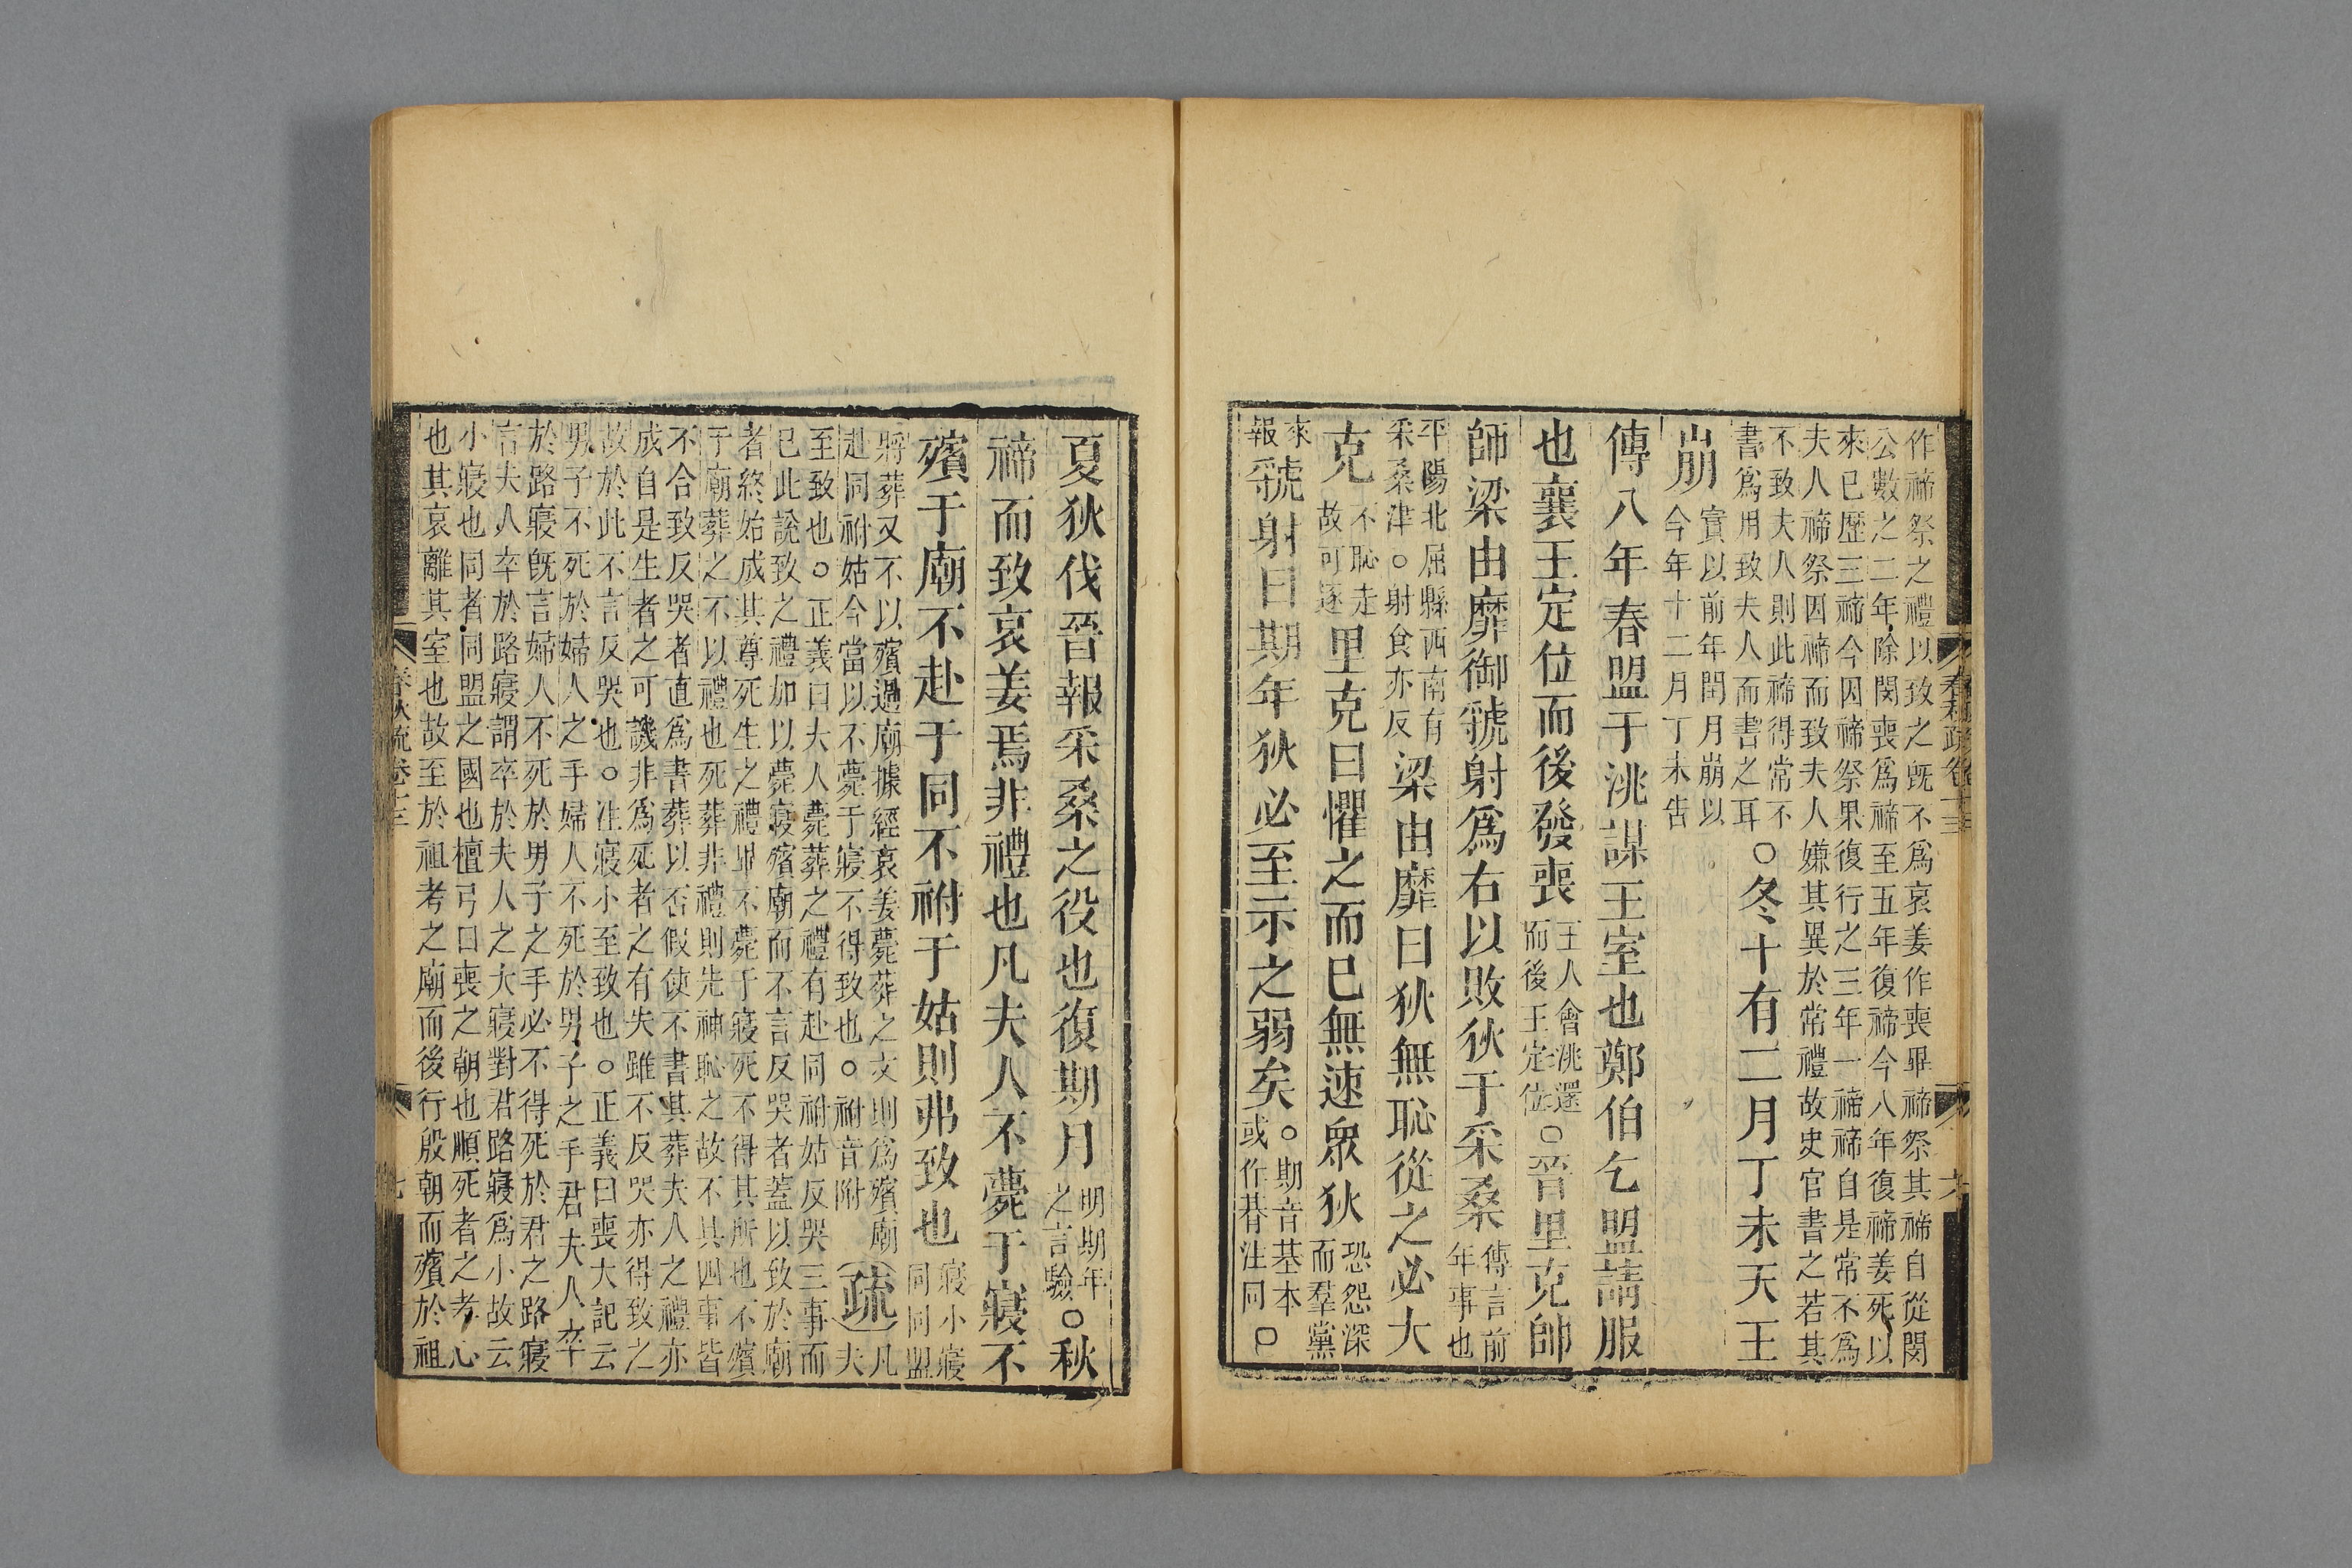 作禘祭之禮以致之既不爲哀姜作喪畢禘祭其禘自從閔
公數之二年除閔喪爲禘至五年復禘今八年復禘姜死以
來已歷三禘今因禘祭果復行之三年一禘禘自是常不爲
夫人禘祭因禘而致夫人嫌其異於常禮故史官書之若其
不致夫人則此禘得常不
書爲用致夫人而書之耳○冬十有二月丁未天王
崩實以前年閏月崩以
今年十二月丁未告
傳八年春盟于洮謀王室也鄭伯乞盟請服
也襄王定位而後發喪王人會洮還而後王定位○晉里克帥
師梁由靡御虢射爲右以敗狄于采桑傳言前年事也
平陽北屈縣西南有采桑津○射食亦反梁由靡曰狄無恥從之必大
克不恥走故可逐里克曰懼之而已無速衆狄恐怨深而羣黨
來報虢射曰期年狄必至示之弱矣○期音基本或作朞注同○
夏狄伐晉報采桑之役也復期月明期年之言驗○秋
禘而致哀姜焉非禮也凡夫人不薨于寢不
殯于廟不赴于同不祔于姑則弗致也寢小寢同同盟
將葬又不以殯過廟據經哀姜薨葬之文則爲殯廟
赴同祔姑今當以不薨于寢不得致也○祔音附疏凡夫
至致也○正義曰夫人薨葬之禮有赴同祔姑反哭三事而
已此說致之禮加以薨寢殯廟而不言反哭者蓋以致於廟
者終始成其尊死生之禮畢不薨于寢死不得其所也不殯
于廟葬之不以禮也死葬非禮則先神恥之故不具四事皆
不合致反哭者直爲書葬以否假使不書其葬夫人之禮亦
成自是生者之可譏非爲死者之有失雖不反哭亦得致之
故於此不言反哭也○注寢小至致也○正義曰喪大記云
男子不死於婦人之手婦人不死於男子之手君夫人卒
於路寢既言婦人不死於男子之手必不得死於君之路寢
言夫人卒於路寢謂卒於夫人之大寢對君路寢爲小故云
小寢也同者同盟之國也檀弓曰喪之朝也順死者之孝心
也其哀離其室也故至於祖考之廟而後行殷朝而殯於祖